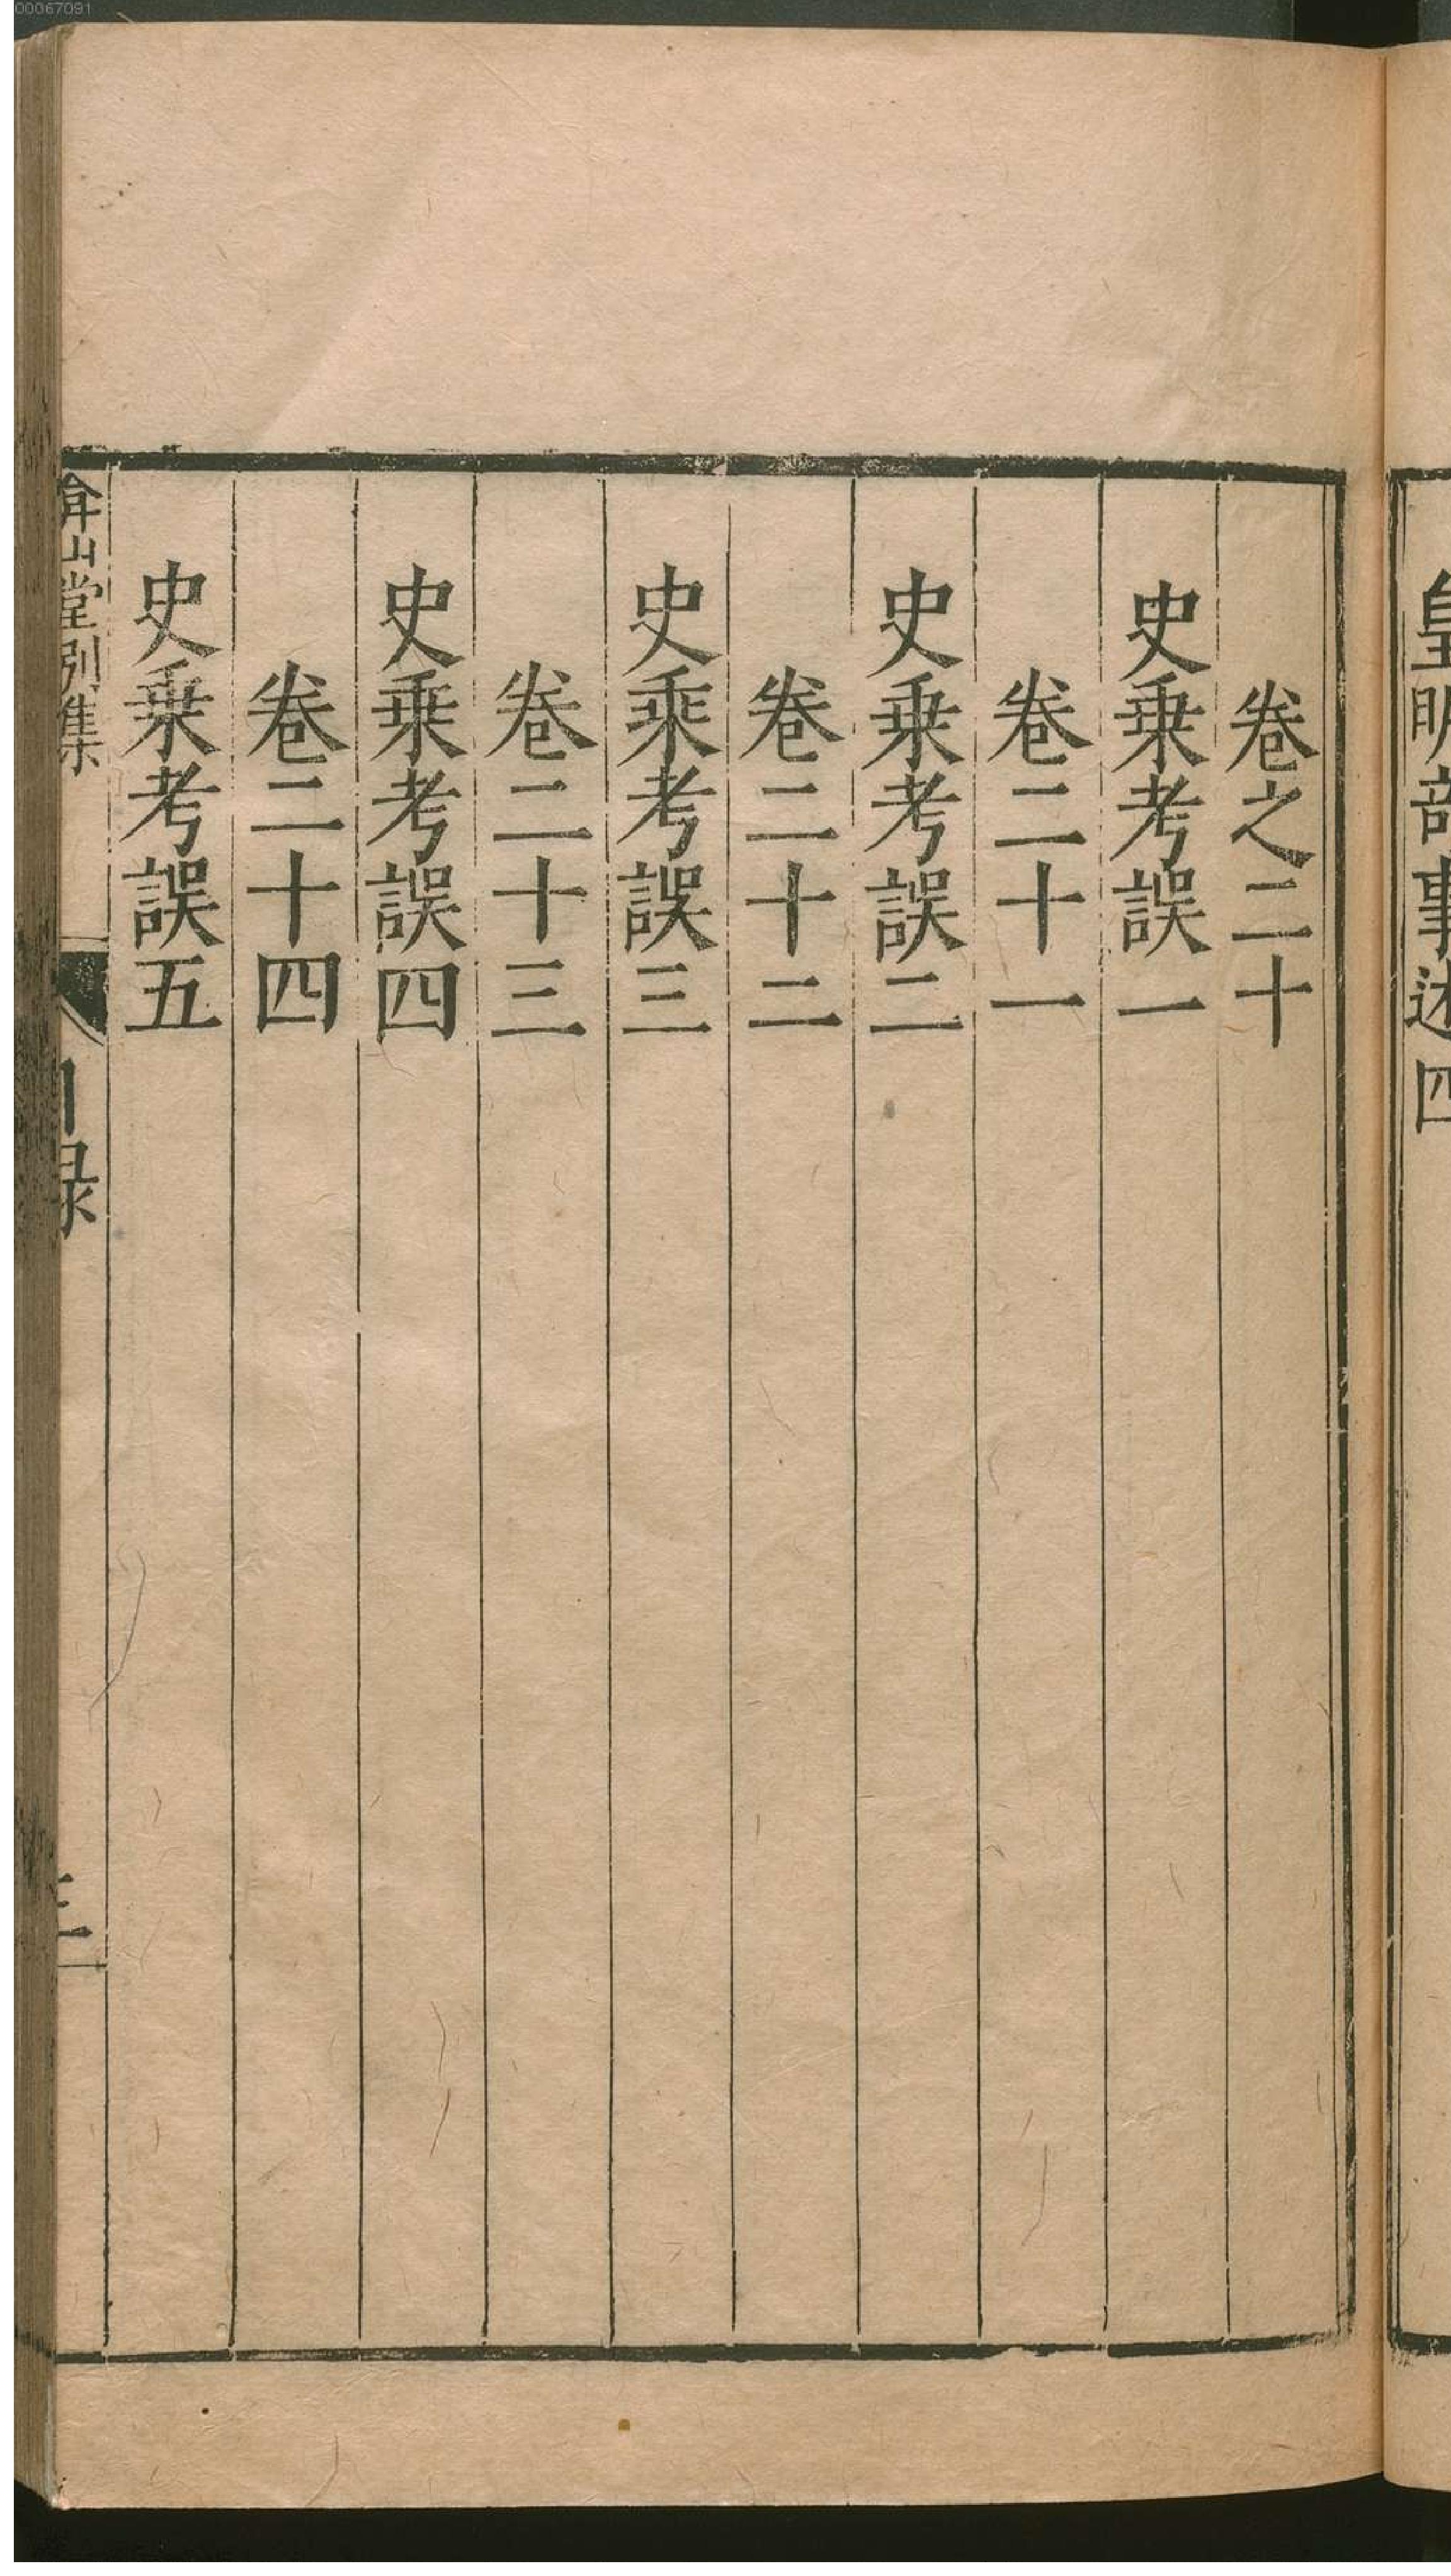 00067091
皇明部事述四
卷之二十
史乗考誤一
卷二十一
史乗考誤二
卷二十二
史乘考誤三
卷二十三
史乗考誤四
卷二十四
史乗考誤五
弇山堂別集
目録
三